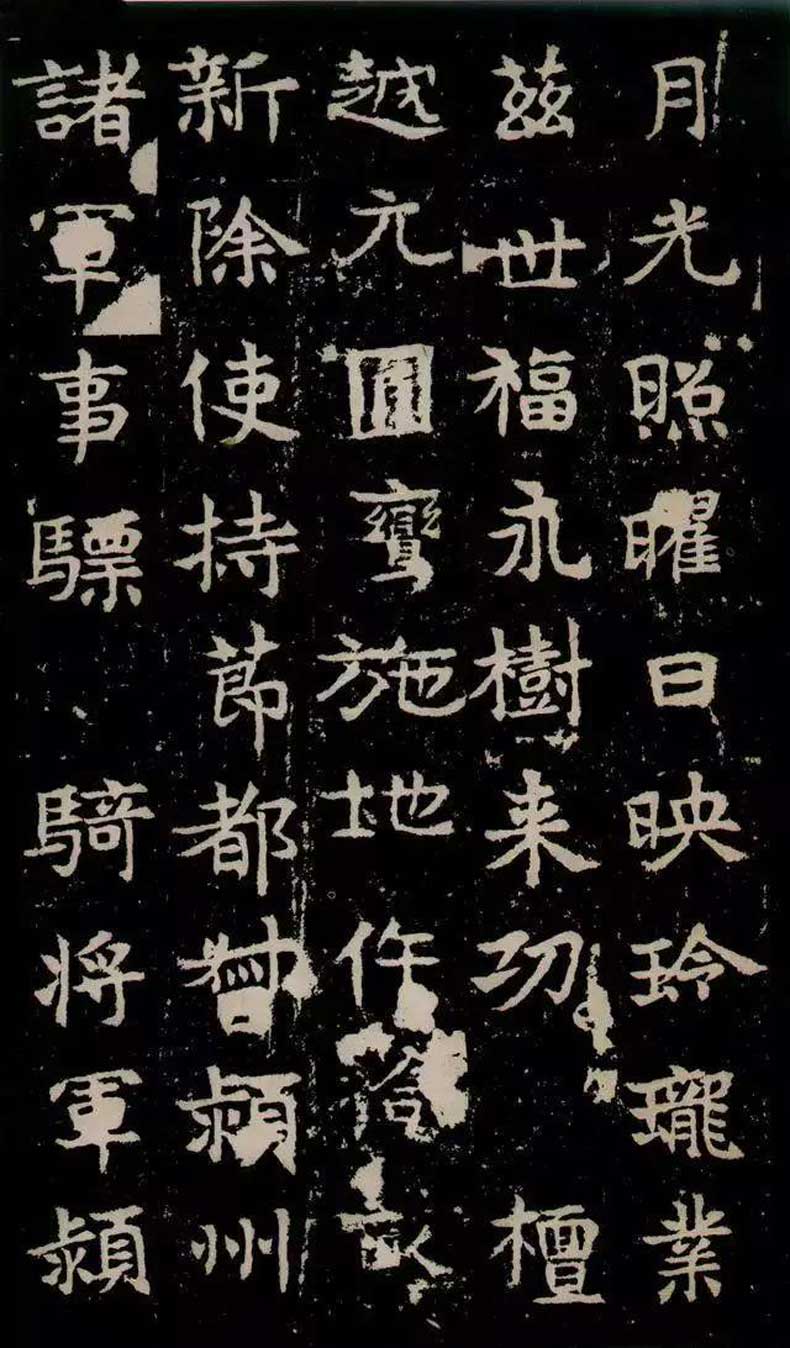 月光照曜日映玲瓏業
茲世福永樹来功檀
越元鸞施地仵拾
新除使持節都督潁州
諸軍事驃騎将軍潁